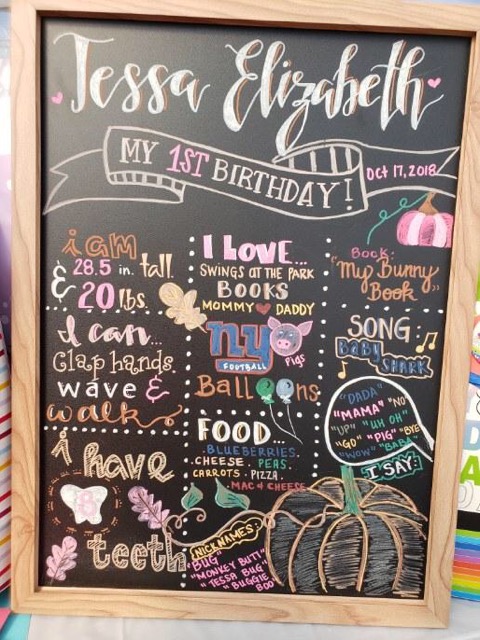 Tessa Elizabeth
MY 1ST BIRTHDAY!
Oct 17, 2018
i am
28.5 in. tall
& 20 lbs.
I can...
Clap hands
wave &
walk
i have
8
teeth
I LOVE...
SWINGS AT THE PARK
BOOKS
MOMMY DADDY
ny
FOOTBALL
PIGS
Balloons
FOOD...
BLUEBERRIES.
CHEESE. PEAS.
CARROTS. PIZZA.
MAC & CHEESE
NICKNAMES:
"BUG"
"MONKEY BUTT"
"TESSA BUG"
"BUGGIE
BOO"
BOOK:
"My Bunny
Book"
SONG
Baby
SHARK
"DADA"
"MAMA" "NO"
"UP" "UH OH"
"GO" "PIG" "BYE"
"WOW" "BABA"
I SAY: